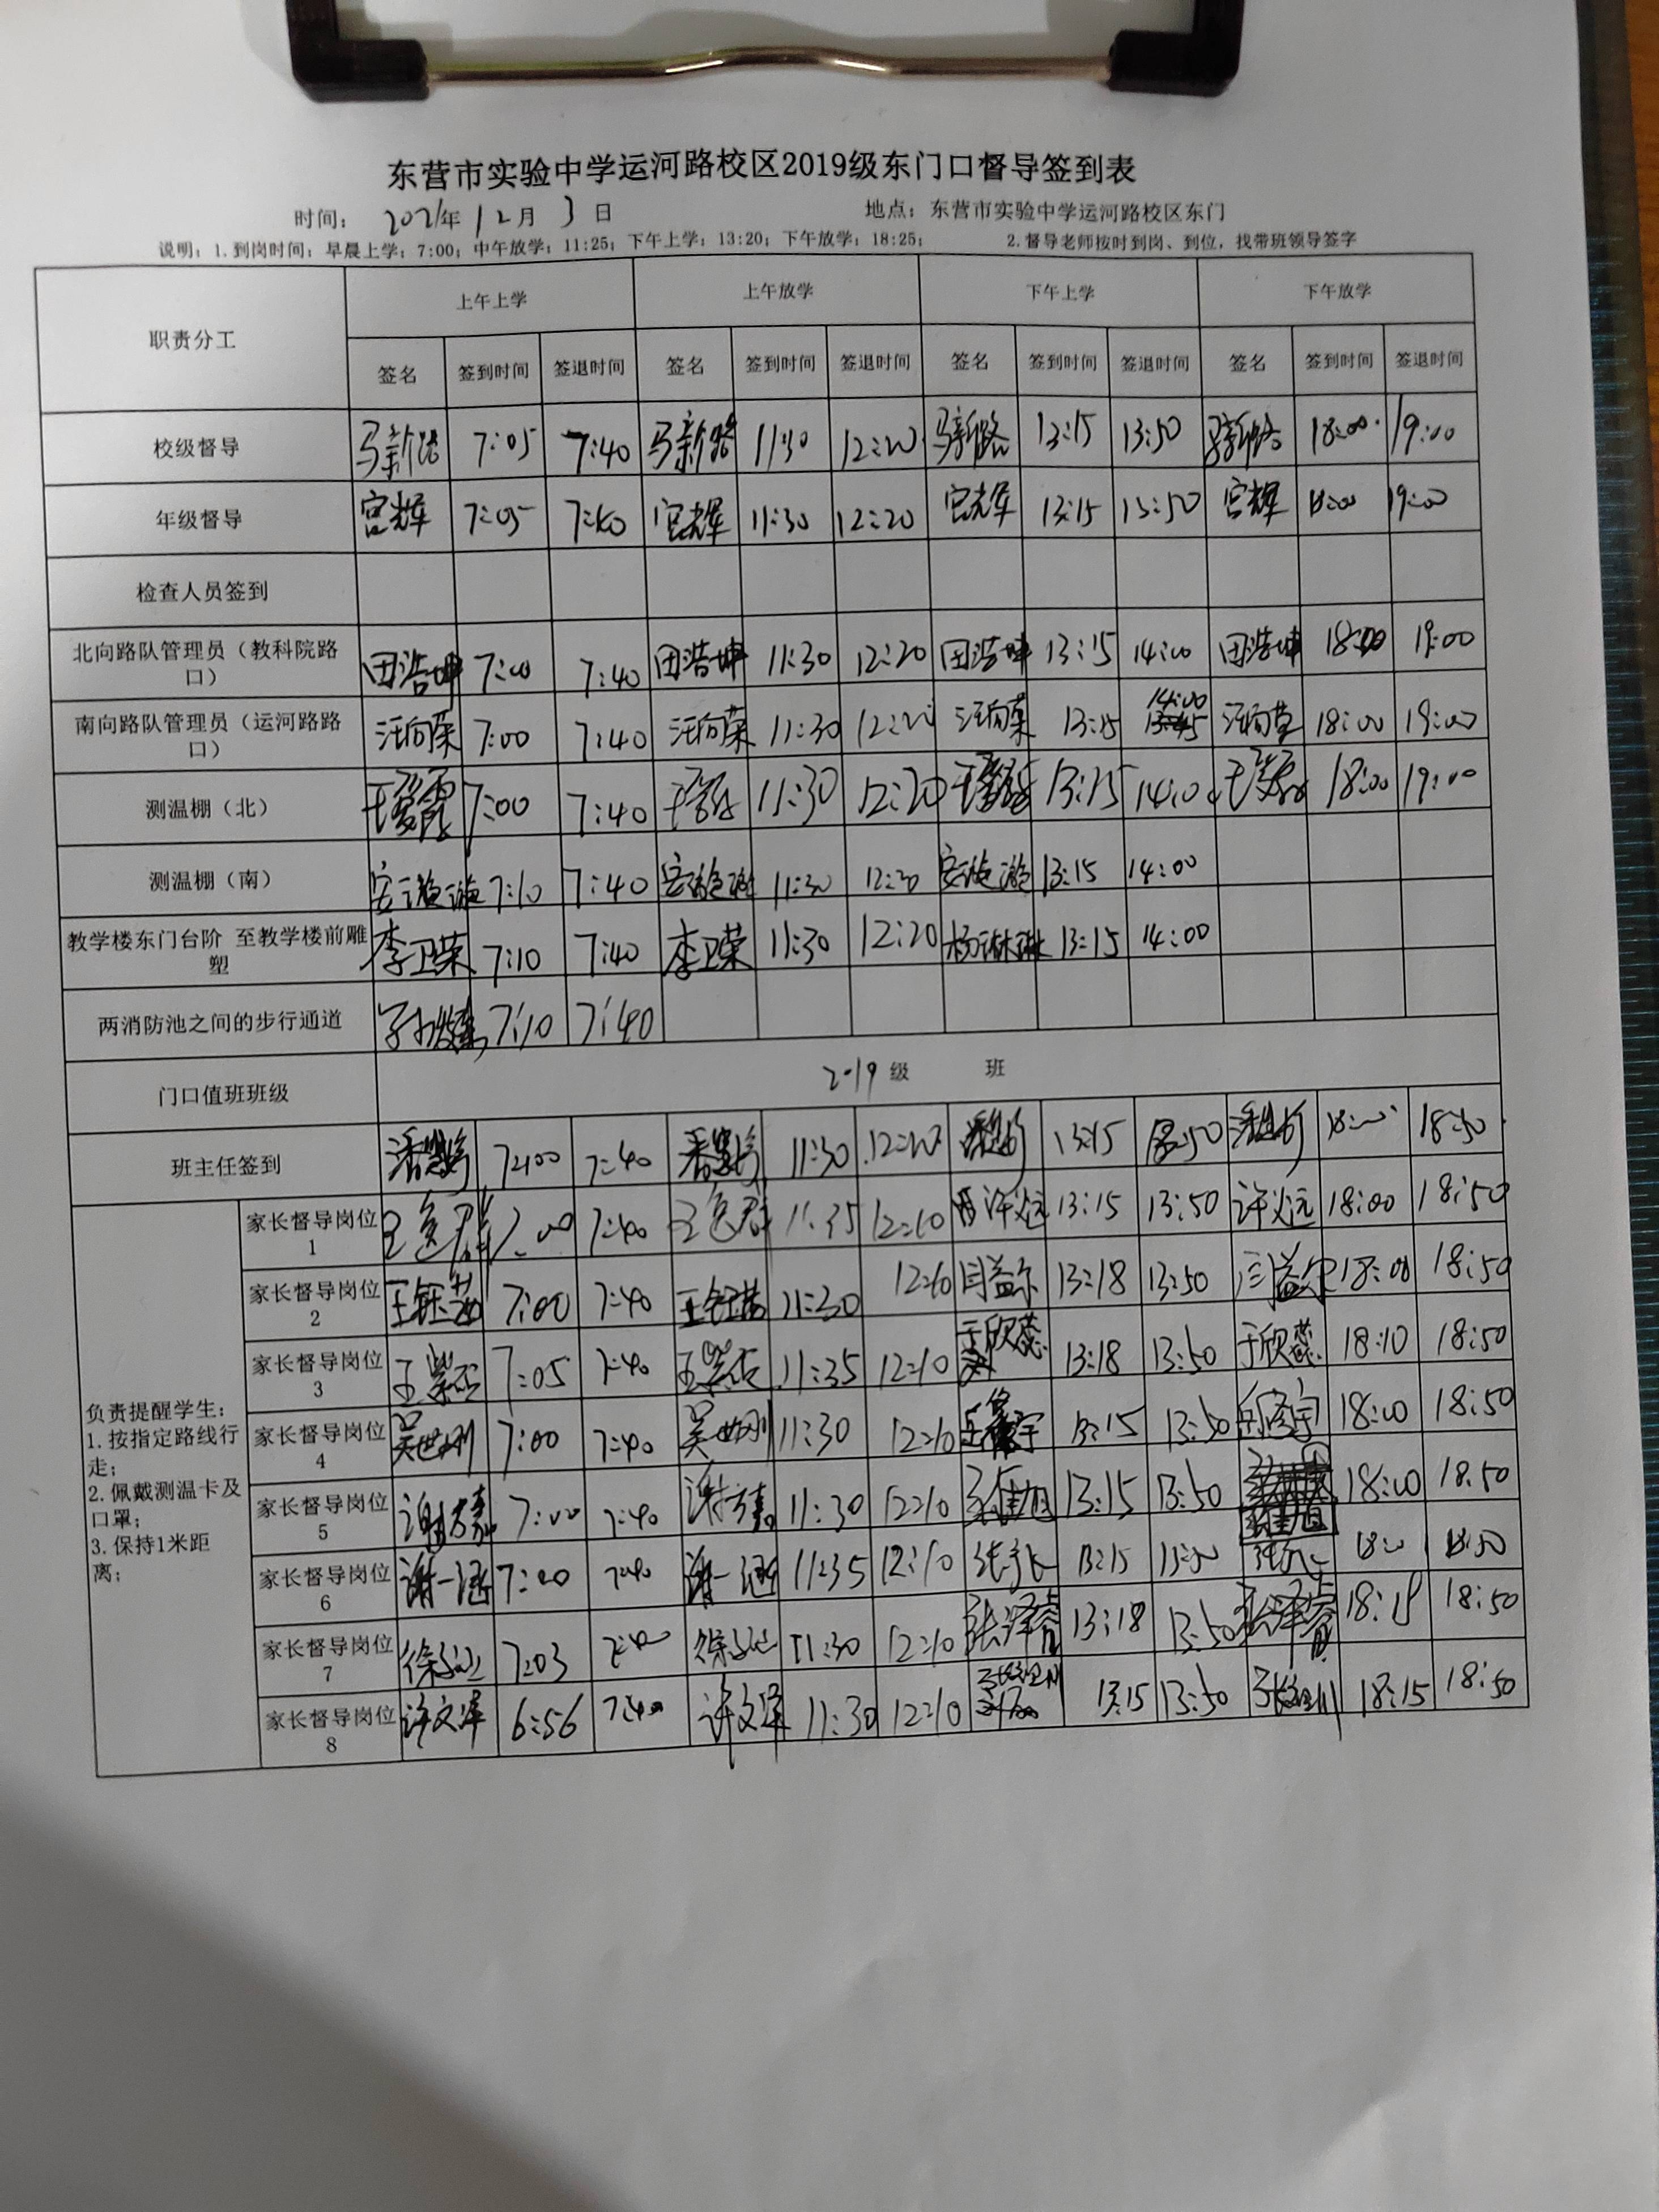 东营市实验中学运河路校区2019级东门口督导签到表
时间： 2021年 12月 3日 地点：东营市实验中学运河路校区东门
说明：1.到岗时间：早晨上学：7:00；中午放学：11:25；下午上学：13:20；下午放学：18:25； 2.督导老师按时到岗、到位，找带班领导签字
职责分工 上午上学 上午放学 下午上学 下午放学
签名 签到时间 签退时间 签名 签到时间 签退时间 签名 签到时间 签退时间 签名 签到时间 签退时间
校级督导 马新路 7:05 7:40 马新路 11:30 12:20 马新路 13:15 13:50 马新路 18:00 19:00
年级督导 宫辉 7:05 7:40 宫辉 11:30 12:20 宫辉 13:15 13:50 宫辉 18:00 19:00
检查人员签到
北向路队管理员（教科院路
口） 田浩坤 7:00 7:40 田浩坤 11:30 12:20 田浩坤 13:15 14:00 田浩坤 18:00 19:00
南向路队管理员（运河路路
口） 汪向荣 7:00 7:40 汪向荣 11:30 12:20 汪向荣 13:15 14:00 汪向荣 18:00 19:00
测温棚（北） 7:00 7:40 11:30 12:20 13:15 14:00 18:00 19:00
测温棚（南） 7:10 7:40 11:30 12:20 13:15 14:00
教学楼东门台阶 至教学楼前雕
塑 李卫荣 7:10 7:40 李卫荣 11:30 12:20 杨琳琳 13:15 14:00
两消防池之间的步行通道 7:10 7:40
门口值班班级 2019 级 班
班主任签到 7:00 7:40 11:30 12:20 13:15 13:50 18:00 18:50
负责提醒学生：
1.按指定路线行
走；
2.佩戴测温卡及
口罩；
3.保持1米距
离；
家长督导岗位
1 7:00 7:40 11:35 12:10 许文远 13:15 13:50 许文远 18:00 18:50
家长督导岗位
2 王钰茹 7:00 7:40 王钰茹 11:30 12:10 闫益尔 13:18 13:50 闫益尔 18:00 18:50
家长督导岗位
3 7:05 7:40 11:35 12:10 于欣蕊 13:18 13:50 于欣蕊 18:10 18:50
家长督导岗位
4 吴世刚 7:00 7:40 吴世刚 11:30 12:10 13:15 13:50 18:00 18:50
家长督导岗位
5 谢方嘉 7:00 7:40 谢方嘉 11:30 12:10 13:15 13:50 18:00 18:50
家长督导岗位
6 谢一涵 7:00 7:40 谢一涵 11:35 12:10 13:15 13:50 18:00 18:50
家长督导岗位
7 7:03 7:40 11:30 12:10 张泽睿 13:18 13:50 张泽睿 18:18 18:50
家长督导岗位
8 许文泽 6:56 7:40 许文泽 11:30 12:10 13:15 13:50 18:15 18:50